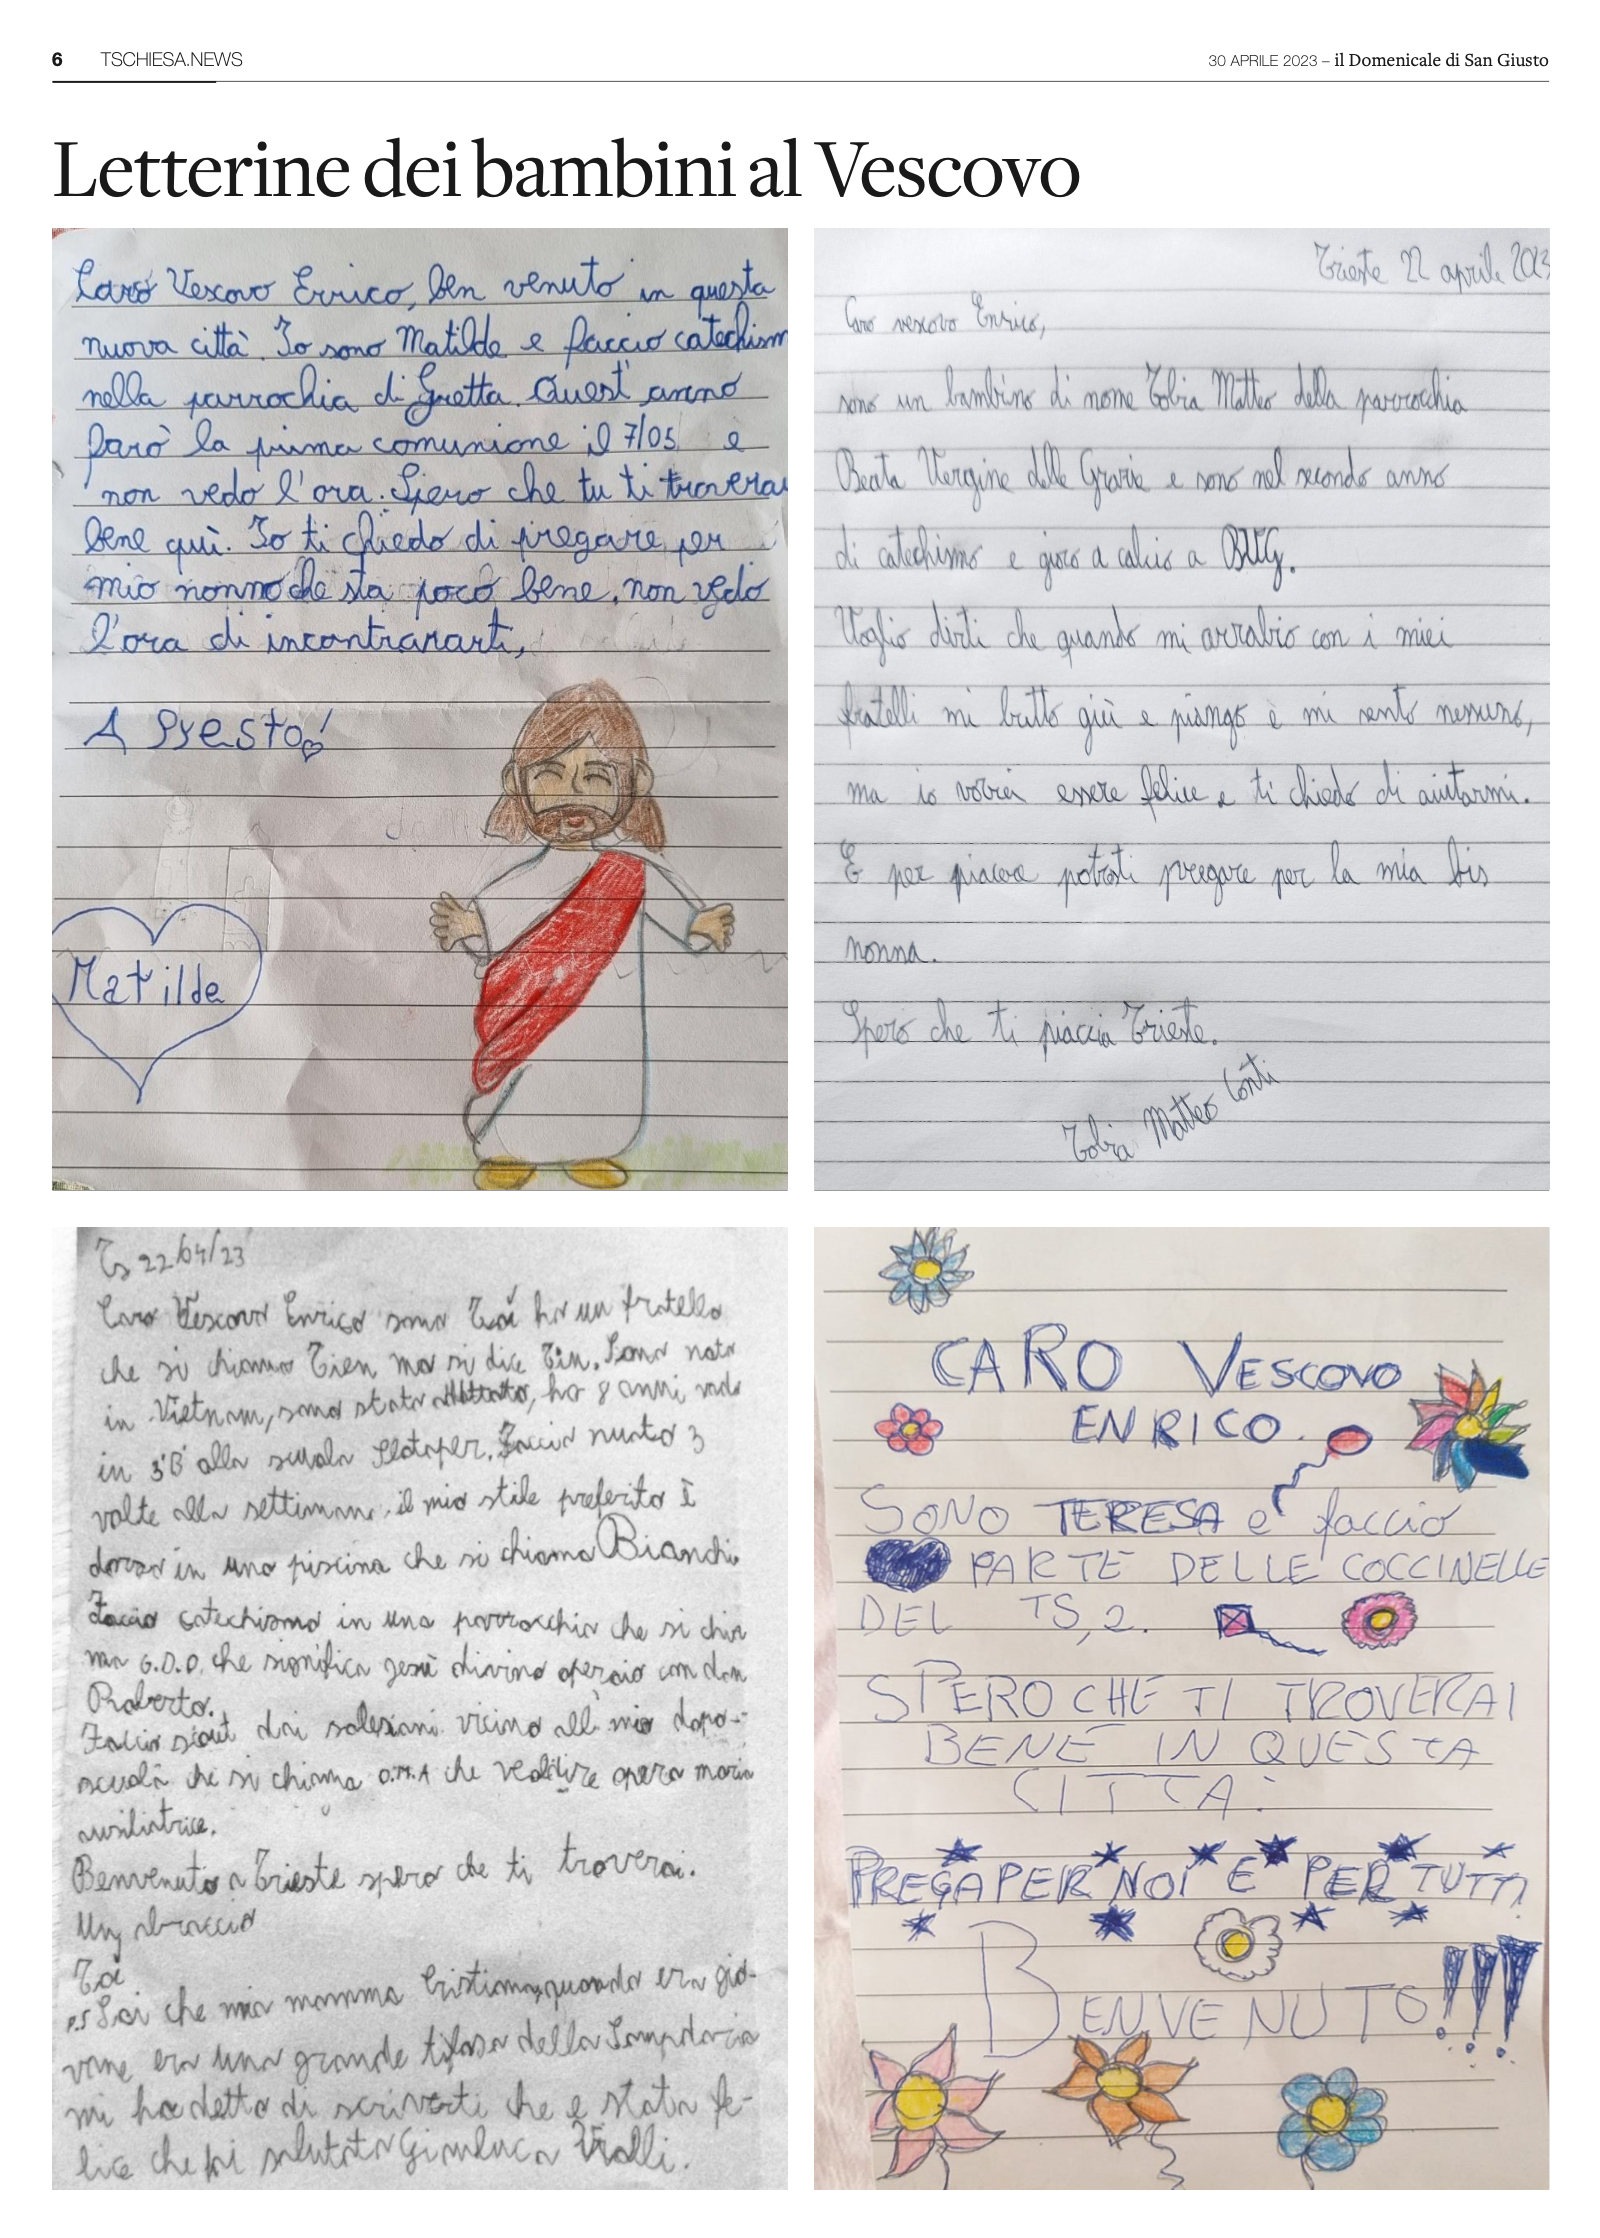 6 TSCHIESA.NEWS
30 APRILE 2023 – il Domenicale di San Giusto
Letterine dei bambini al Vescovo
Caro Vescovo Errico, ben venuto in questa
nuova città. Io sono Matilde e faccio catechism
nella parrochia di Gretta. Quest'anno
farò la prima comunione il 7/05 e
non vedo l'ora. Spero che tu ti troverai
bene quì. Io ti chiedo di pregare per
mio nonno che sta poco bene, non vedo
l'ora di incontrararti,
A Presto!
Matilde
Trieste 22 aprile 2023
Caro vescovo Enrico,
sono un bambino di nome Tobia Matteo della parrocchia
Beata Vergine delle Grazie e sono nel secondo anno
di catechismo e gioco a calcio a BVG.
Voglio dirti che quando mi arrabio con i miei
fratelli mi butto giù e piango e mi sento nessuno,
ma io vorrei essere felice e ti chiedo di aiutarmi.
E per piacere potresti pregare per la mia bis
nonna.
Spero che ti piaccia Trieste.
Tobia Matteo Conti
Ts 22/04/23
Caro Vescovo Enrico sono Tai ho un fratello
che si chiama Tien ma si dice Tin. Sono nato
in Vietnam, sono stato adottato, ho 8 anni, vado
in 3ªB alla scuola Slataper. Faccio nuoto 3
volte alla settimana, il mio stile preferito è
dorso in una piscina che si chiama Bianchi.
Faccio catechismo in una parrocchia che si chia
ma G.D.O. che significa gesù divino operaio con don
Roberto.
Faccio scout dai salesiani vicino all mio dopo-
scuola che si chiama O.M.A che vuol dire opera maria
ausiliatrice.
Benvenuto a Trieste spero che ti troverai.
Un abraccio
Tai
P.S Sai che mia mamma Cristina, quando era gio-
vane era una grande tifosa della Sampdoria
mi ha detto di scriverti che e stata fe-
lice che hai salutato Gianluca Vialli.
CARO VESCOVO
ENRICO.
SONO TERESA e faccio
PARTE DELLE COCCINELLE
DEL TS,2.
SPERO CHE TI TROVERAI
BENE IN QUESTA
CITTA.
PREGA PER NOI E PER TUTTI
BENVENUTO!!!